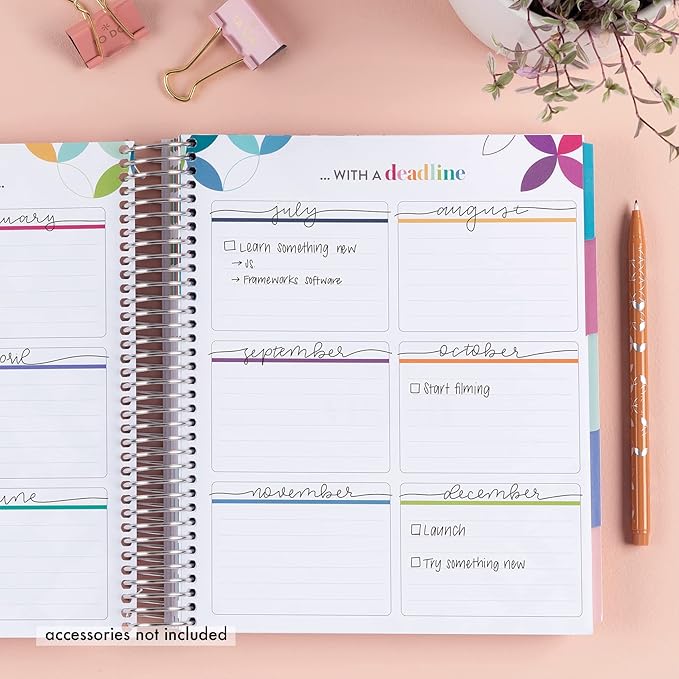 TO DO
...
... WITH A deadline
uary
july
august
Learn something new
→ JS.
→ Frameworks software
pril
september
october
Start filming
une
november
december
Launch
Try something new
accessories not included